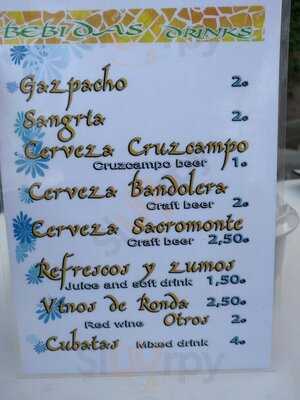 BEBIDAS DRINKS
Gazpacho 2.
Sangria 2.
Cerveza Cruzcampo
Cruzcampo beer 1.
Cerveza Bandolera
Craft beer 2.
Cerveza Sacromonte
Craft beer 2,50.
Refrescos y zumos
Juice and soft drink 1,50.
Vinos de Ronda 2,50.
Red wine Otros 2.
Cubatas Mixed drink 4.